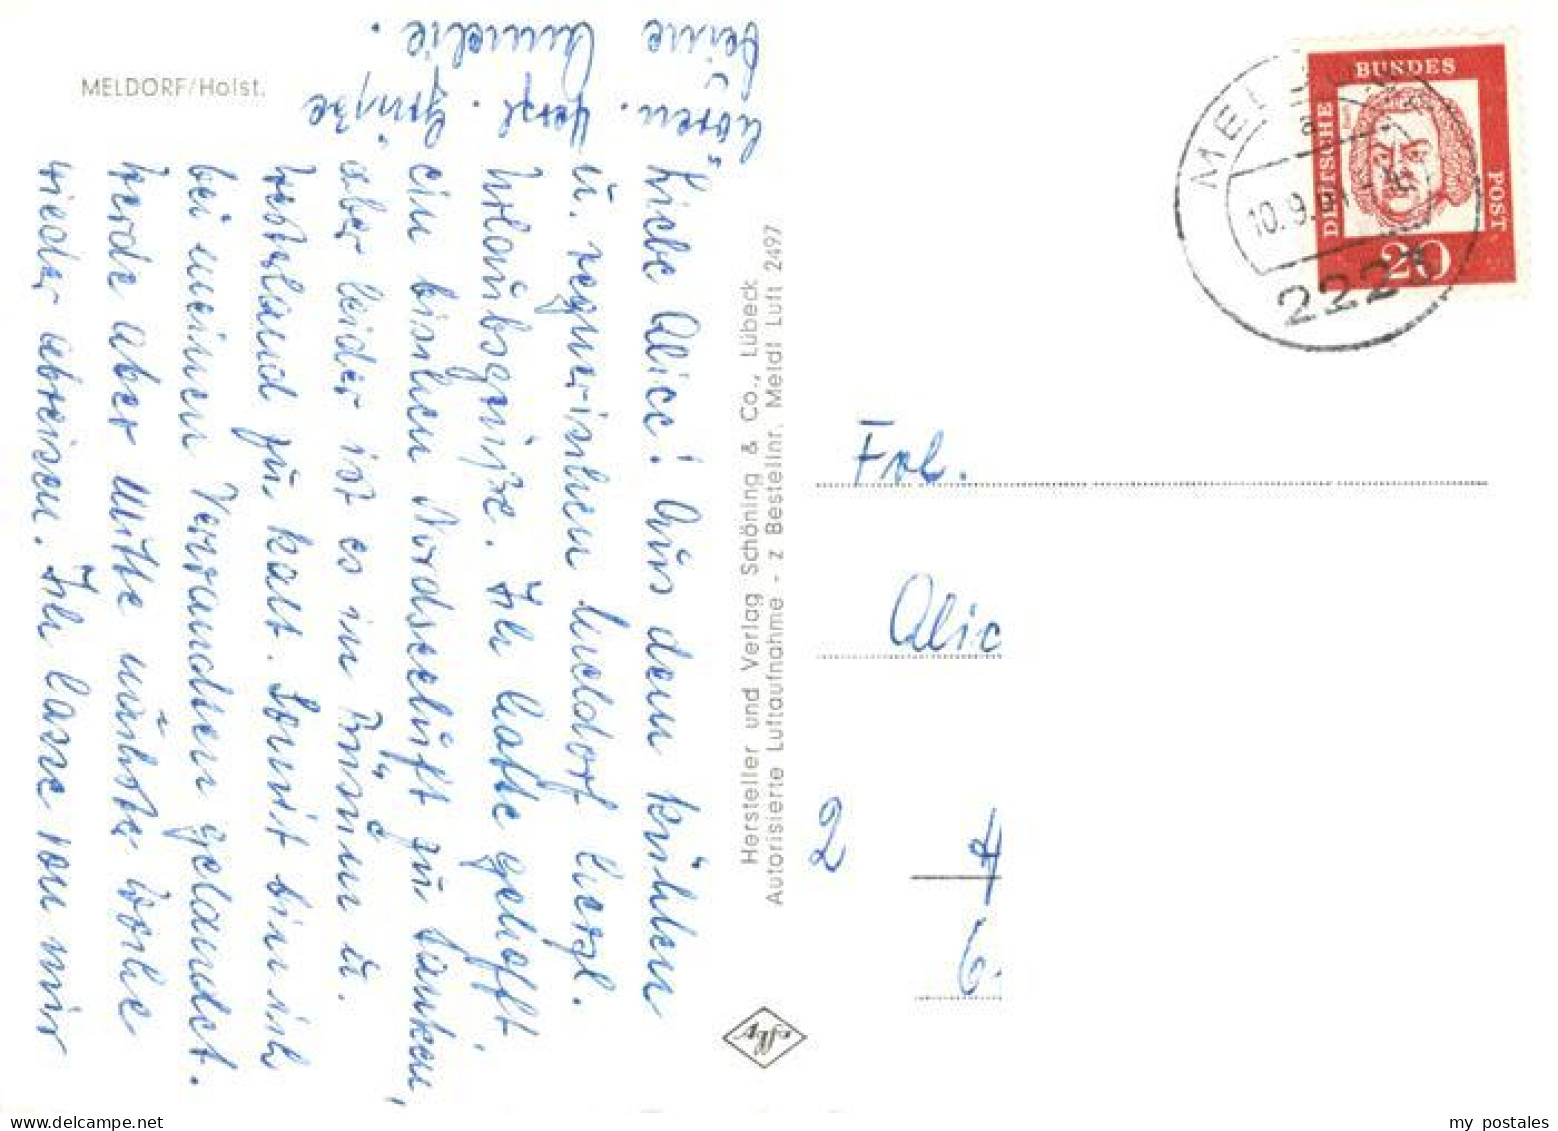 MELDORF/Holst.
Liebe Alice! Aus dem kühlen
u. regnerischen Meldorf herzl.
Urlaubsgrüsse. Ich hatte gehofft
ein bischen Nordseeluft zu tanken,
aber leider ist es in Büsum u.
Westerland zu kalt. Somit bin ich
bei meinen Verwandten gelandet.
Werde aber Mitte nächster Woche
wieder abreisen. Ich lasse von mir
hören. Herzl. Grüsse
Deine Annelie.
Hersteller und Verlag Schöning & Co., Lübeck
Autorisierte Luftaufnahme - z Bestellnr. Meldl Luft 2497
DEUTSCHE
BUNDES
POST
20
10.9.
2223
Frl.
Alic
2
6.
my postales